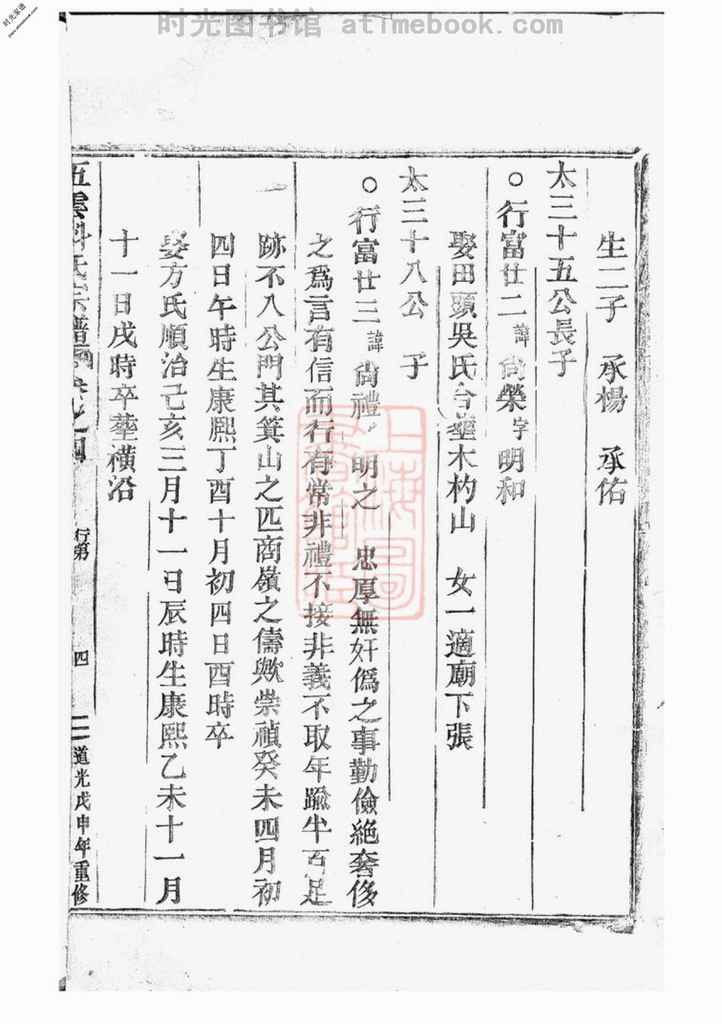 时光图书馆 - atimebook.com
时光家谱
生二子　承楊　承佑
太三十五公長子
○行富廿二諱尙榮字明和
娶田頭吳氏合塟木杓山　女一適廟下張
太三十八公　子
○行富廿三諱尙禮　明之　忠厚無奸僞之事勤儉絶奢侈
之爲言有信而行有常非禮不接非義不取年踰半百足
跡不入公門其箕山之匹商嶺之儔歟崇禎癸未四月初
四日午時生康熙丁酉十月初四日酉時卒
娶方氏順治己亥三月十一日辰時生康熙乙未十一月
十一日戌時卒塟橫沿
五雲　氏宗譜　卷之四　行第　四　道光戊申年重修